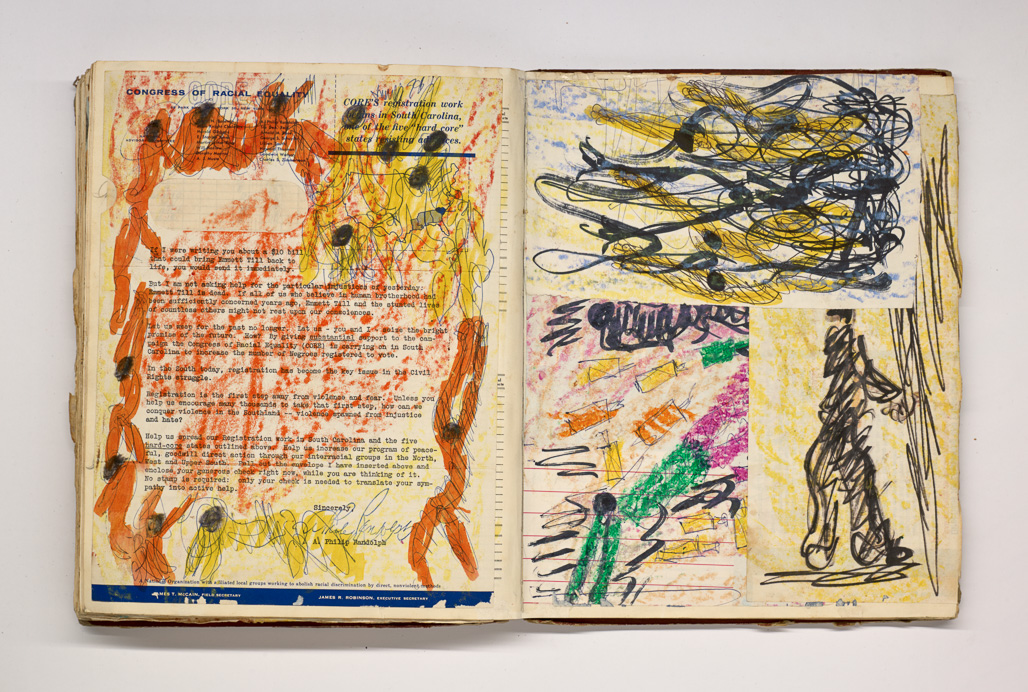 CORE
CONGRESS OF RACIAL EQUALITY
CORE'S registration work
begins in South Carolina,
one of the five "hard core"
states resisting advances.
If I were writing you about a $10 bill
that could bring Emmett Till back to
life, you would send it immediately.
But I am not asking help for the particular injustices of yesterday:
Emmett Till is dead. If all of us who believe in human brotherhood had
been sufficiently concerned years ago, Emmett Till and the stunted lives
of countless others might not rest upon our consciences.
Let us weep for the past no longer. Let us - you and I - seize the bright
promise of the future. How? By giving substantial support to the cam-
paign the Congress of Racial Equality (CORE) is carrying on in South
Carolina to increase the number of Negroes registered to vote.
In the South today, registration has become the key issue in the Civil
Rights struggle.
Registration is the first step away from violence and fear. Unless you
help us encourage many thousands to take that first step, how can we
conquer violence in the Southland -- violence spawned from injustice
and hate?
Help us spread our registration work in South Carolina and the five
hard-core states outlined above. Help us increase our program of peace-
ful, goodwill direct action through our interracial groups in the North,
East and Upper South. Pull out the envelope I have inserted above and
enclose your generous check right now, while you are thinking of it.
No stamp is required: only your check is needed to translate your sym-
pathy into active help.
Sincerely,
A. Philip Randolph
A National Organization with affiliated local groups working to abolish racial discrimination by direct, nonviolent methods
JAMES T. McCAIN, FIELD SECRETARY
JAMES R. ROBINSON, EXECUTIVE SECRETARY